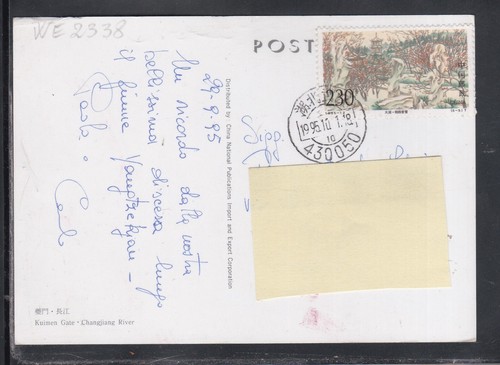 WE 2338
POST
29.9.95
Un ricordo dalla nostra
bellissima discesa lungo
il fiume Yangtzekjan -
Paola e Carlo
Distributed by: China National Publications Import and Export Corporation
夔門·長江
Kuimen Gate · Changjiang River
230
1995.10.1.
430050
Sigg.